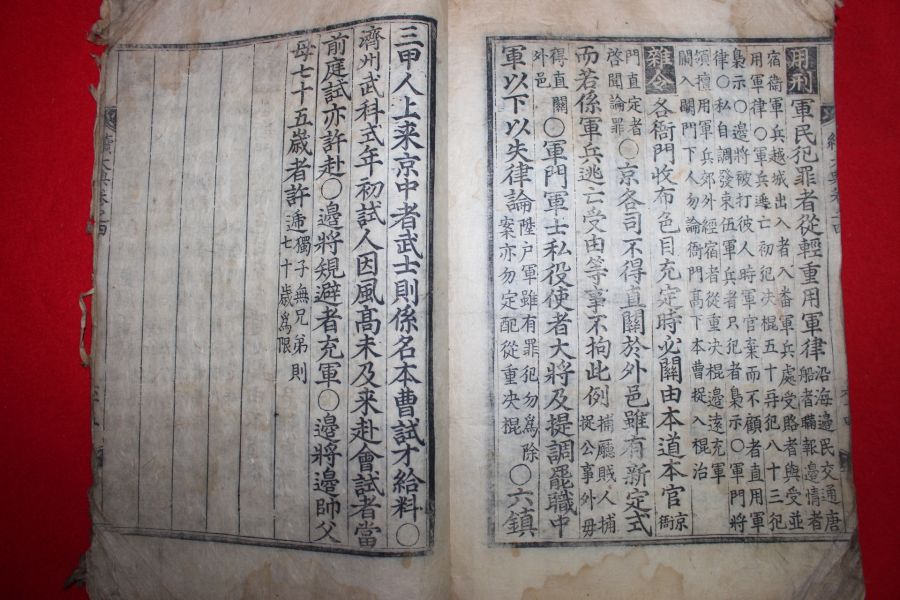 用刑 軍民犯罪者從輕重用軍律 沿海邊民交通唐
船者瞞報邊情者
宿衛軍兵越城出入者入番軍兵處受賂者與受並
用軍律○軍兵逃亡初犯决棍五十再犯八十三犯
梟示○邊將被打彼人時軍官棄而不顧者直用軍
律○私自調發束伍軍兵者只犯者梟示○軍門將
領擅用軍兵郊外經宿者從重决棍邊遠充軍
闌入闕門下人勿論衙門高下本曹捉入棍治
雜令 各衙門收布色目充定時必關由本道本官 京衙
門直定者
啓聞論罪 ○京各司不得直關於外邑雖有新定式
而若係軍兵逃亡受由等事不拘此例 捕廳賊人捕
捉公事外毋
得直關
外邑 ○軍門軍士私役使者大將及提調罷職中
軍以下以失律論 陞户軍雖有罪犯勿爲除
案亦勿定配從重决棍 ○六鎮
三甲人上来京中者武士則係名本曹試才給料○
濟州武科式年初試人因風高未及来赴會試者當
前庭試亦許赴○邊將窺避者充軍○邊將邊帥父
母七十五歳者許遞 獨子無兄弟則
七十歳爲限
續大典卷之四